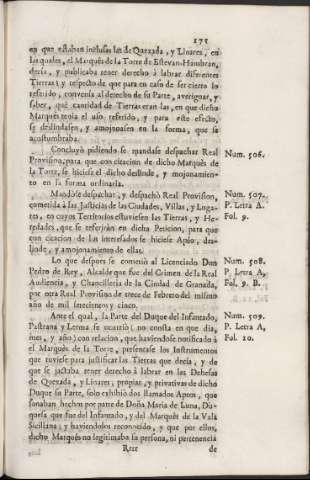 175
en que estaban inclusas las de Quexada, y Linares, en
las quales, el Marquès de la Torre de Estevan-Hambran,
decia, y publicaba tener derecho à labrar diferentes
Tierras; y respecto de que para en caso de ser cierto lo
referido, convenia al derecho de su Parte, averiguar, y
saber, què cantidad de Tierras eran las, en que dicho
Marquès tenia el uso referido, y para este efecto,
se deslindasen, y amojonasen en la forma, que se
acostumbraba.
Concluyò pidiendo se mandase despachar Real
Provision, para que con citacion de dicho Marquès de
la Torre, se hiciese el dicho deslinde, y mojonamien-
to en la forma ordinaria.
Num. 506.
Mandòse despachar, y despachò Real Provision,
cometida à las Justicias de las Ciudades, Villas, y Luga-
res, en cuyos Territorios estuviesen las Tierras, y He-
redades, que se referian en dicha Peticion, para que
con citacion de las interesados se hiciese Apeo, des-
linde, y amojonamiento de ellas.
Num. 507.
P. Letra A.
Fol. 9.
Lo que despues se cometiò al Licenciado Don
Pedro de Rey, Alcalde que fue del Crimen de la Real
Audiencia, y Chancilleria de la Ciudad de Granada,
por otra Real Provision de trece de Febrero del mismo
año de mil setecientos y cinco.
Num. 508.
P. Letra A,
Fol. 9. B.
Ante el qual, la Parte del Duque del Infantado,
Pastrana y Lerma se ocurriò (no consta en que dia,
mes, y año) con relacion, que haviendose notificado à
el Marquès de la Torre, presentase los Instrumentos
que tuviese para justificar las Tierras que decia, y de
que se jactaba tener derecho à labrar en las Dehesas
de Quexada, y Linares, propias, y privativas de dicho
Duque su Parte, solo exhibiò dos llamados Apeos, que
sonaban hechos por parte de Doña Maria de Luna, Du-
quesa que fue del Infantado, y del Marquès de la Vala
Siciliana; y haviendolos reconocido, y que por ellos,
dicho Marquès no legitimaba su persona, ni pertenencia
Num. 509.
P. Letra A,
Fol. 10.
de